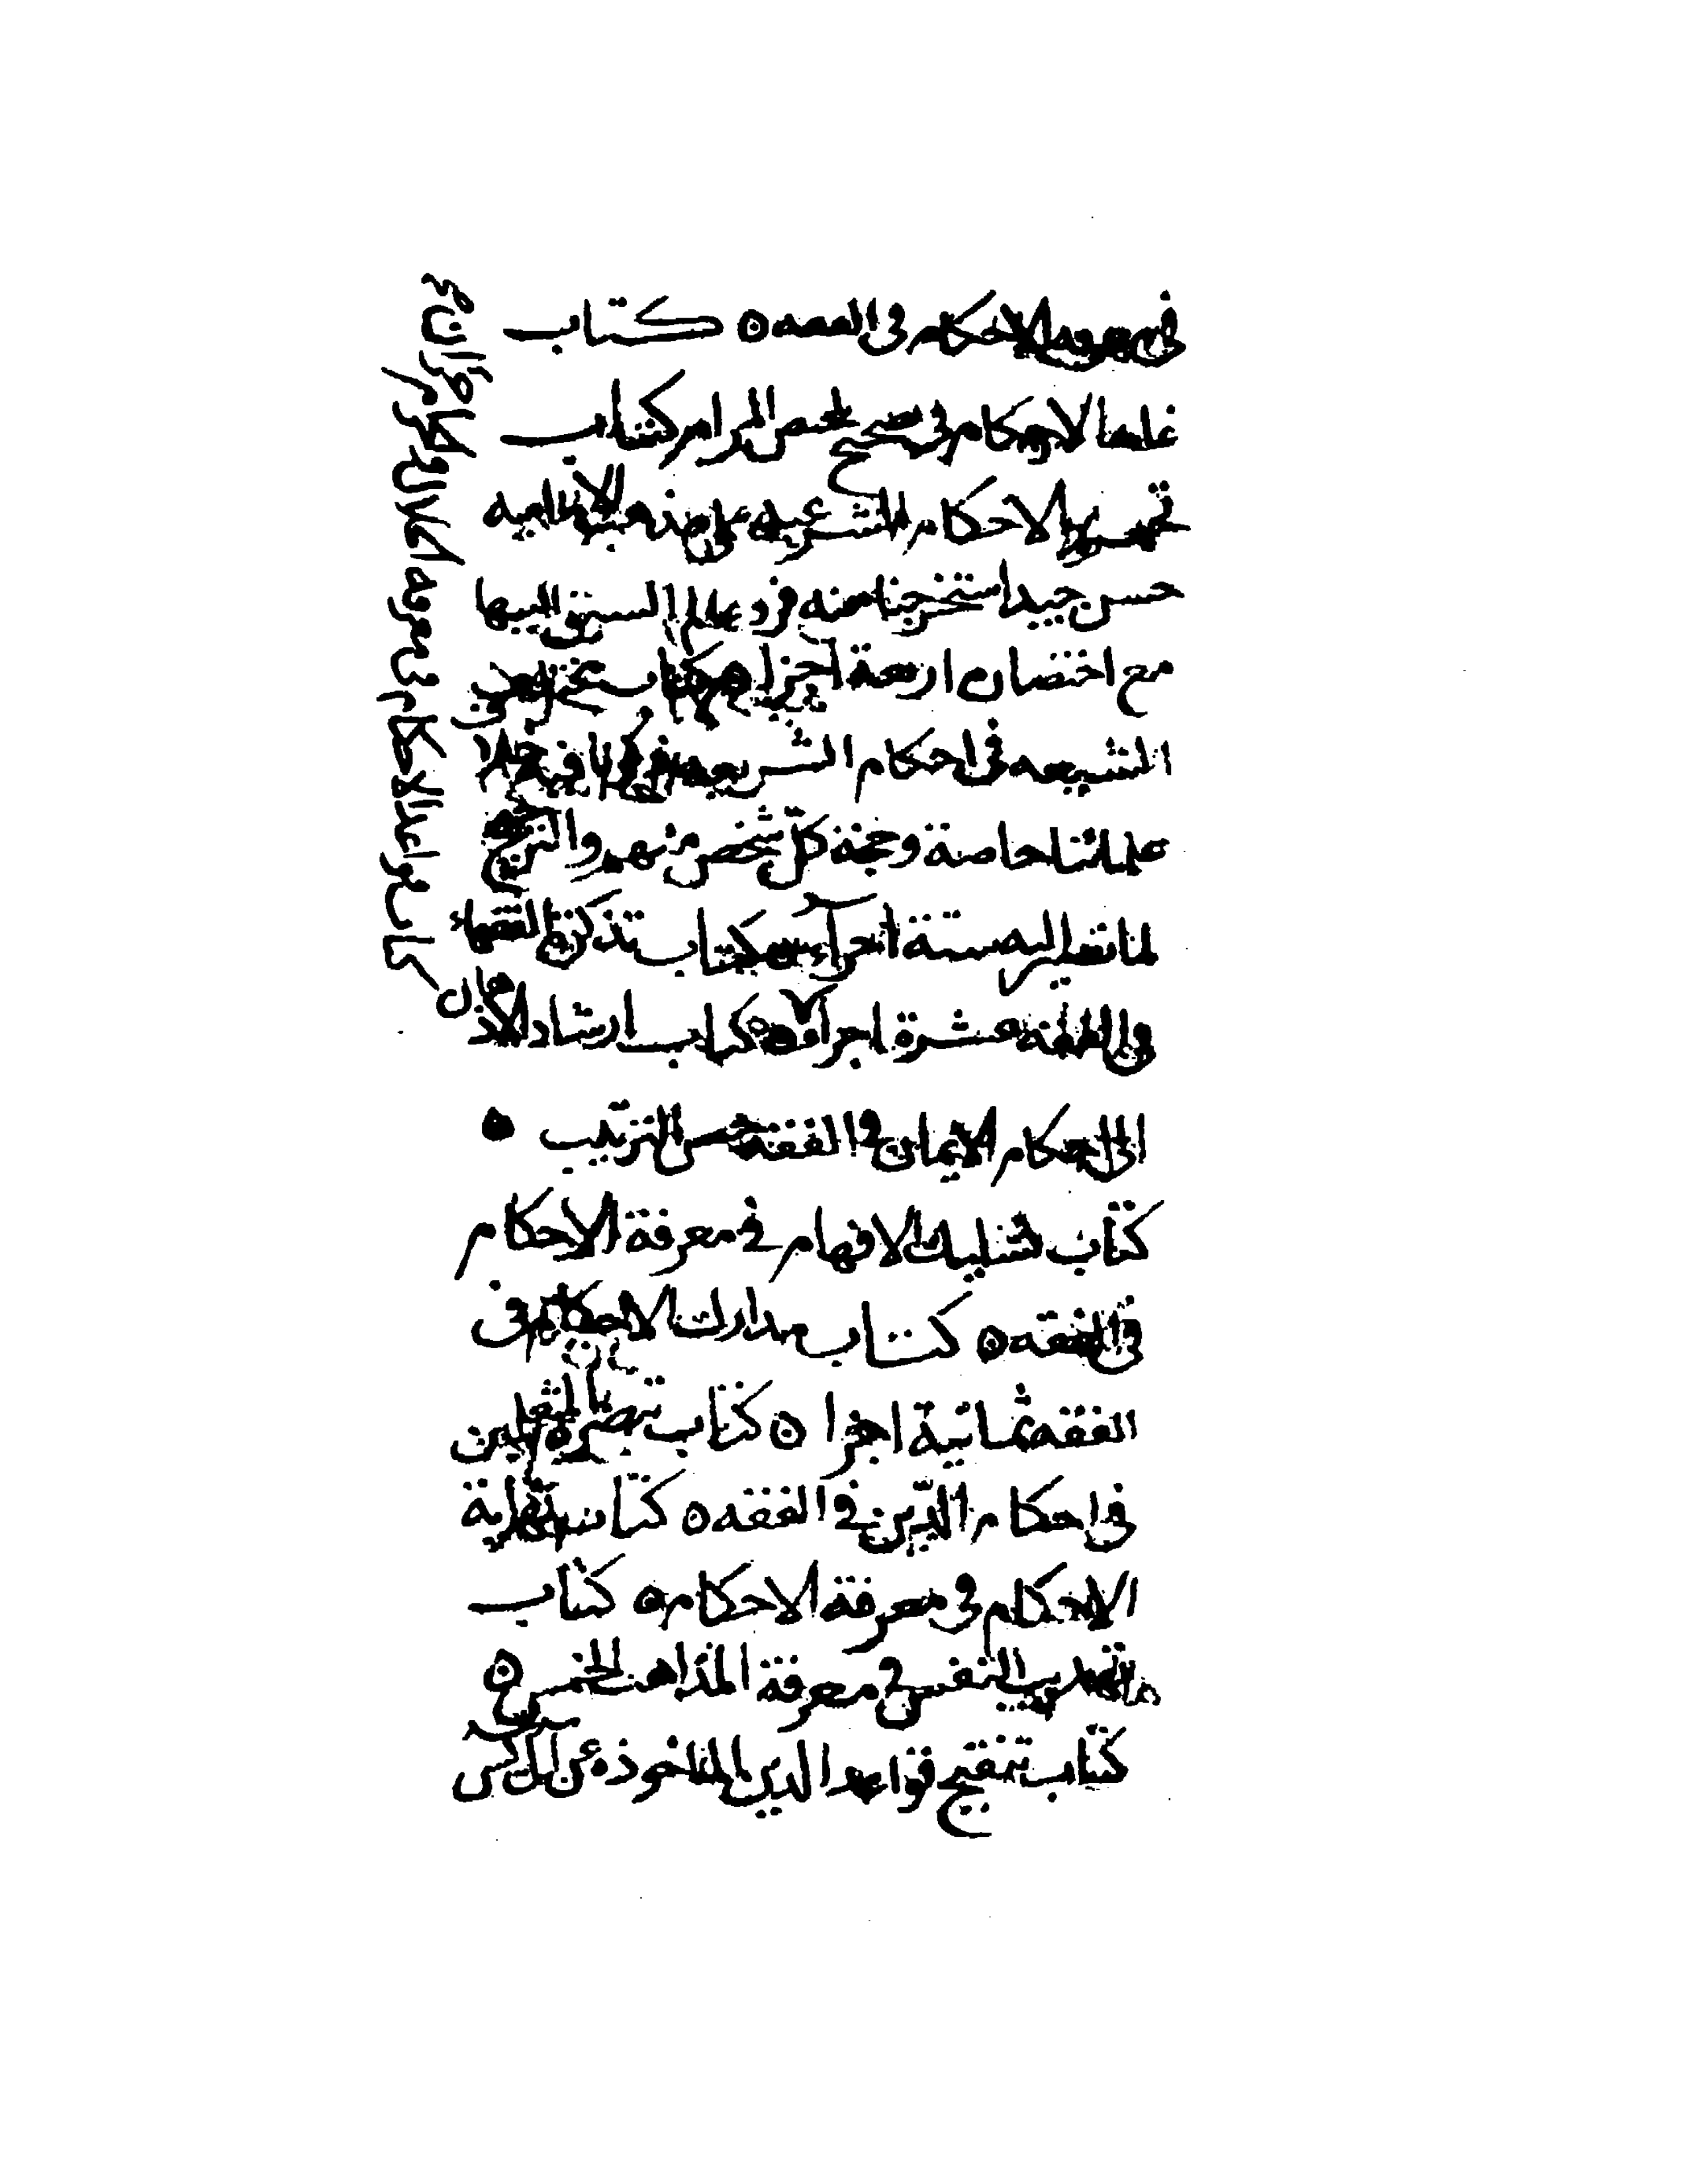 في معرفة الاحكام في الفقه ه كتاب
غايه الاحكام في تصحيح تلخيص المرام كتاب
تحرير الاحكام الشرعيه على مذهب الاماميه
حسن جيد استخرجنا منه فروعا لم نسبق اليها
مع اختصاره اربعة اجزا ه كتاب مختلف
الشيعه في احكام الشريعه ذكرنا فيه خلاف
علمائنا خاصة وحجة كل شخص منهم والترجيح
لما نصير اليه ستة اجزآء ه كتاب تذكرة الفقهاء
في الفقه عشرة اجزآء ه كتاب ارشاد الاذهان
الى احكام الايمان في الفقه حسن الترتيب ه
كتاب تسليك الافهام في معرفة الاحكام
في الفقه ه كتاب مدارك الاحكام في
الفقه ثمانية اجزا ه كتاب تبصرة المتعلمين
في احكام الدين في الفقه ه كتاب نهاية
الاحكام في معرفة الاحكام ه كتاب
تهذيب النفس في معرفة المذاهب الخمس ه
كتاب تنقيح قواعد الدين الماخوذه عن آل يس
كتاب قواعد الاحكام في معرفه الحلال والحرام جزان